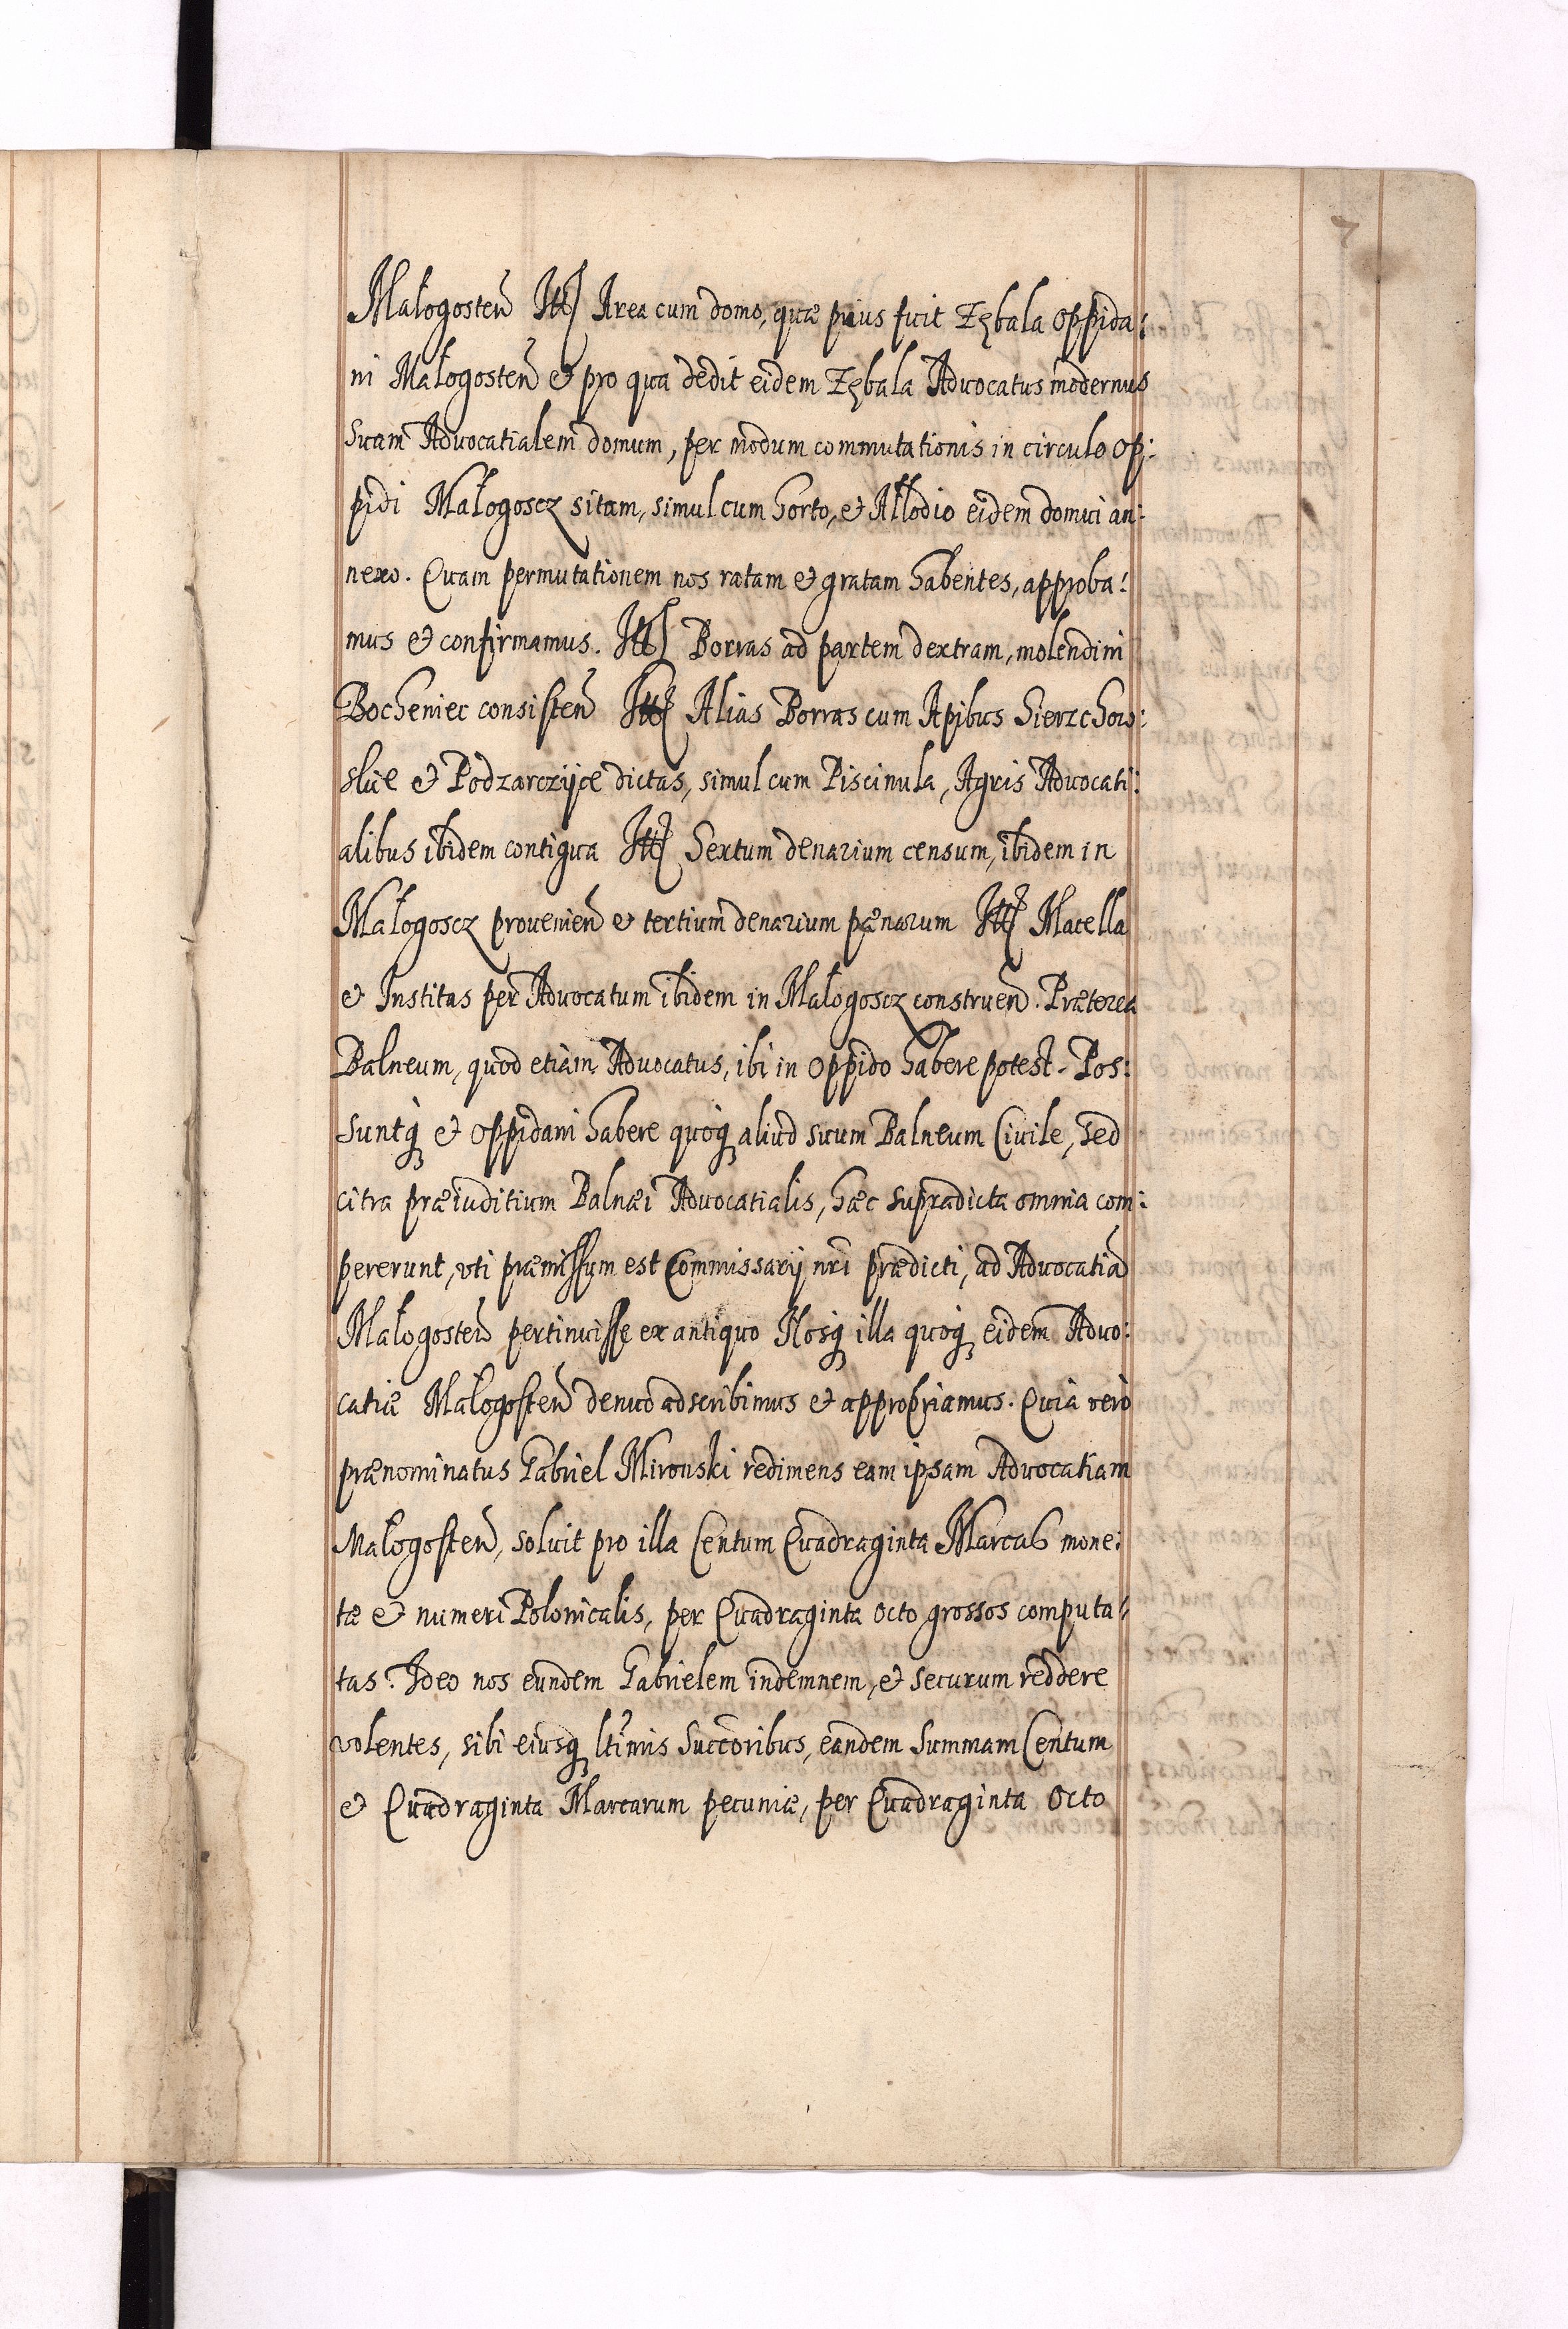 7
Małogosten̄ Itt̄ Area cum domo, quæ prius fuit Zębala oppida:
ni Małogosten̄ et pro qua dedit eidem Zębala Advocatus modernus
Suam Advocatialem domum, per modum commutationis in circulo op:
pidi Małogoscz sitam, simul cum horto, et Allodio eidem domui an:
nexo. Quam permutationem nos ratam et gratam habentes, approba:
mus et confirmamus. Itt̄ Borras ad partem dextram, molendini
Bocheniec consisten̄ Itt̄ Alias Borras cum Apibus Sierzchow:
skie et Podzarczyce dictas, simul cum Piscinula, Agris Advocati:
alibus ibidem contigua Itt̄ Sextum denarium censum, ibidem in
Małogoscz provenien̄ et tertium denarium pænarum Itt̄ Macella
et Institas per Advocatum ibidem in Małogoscz construen̄. Præterea
Balneum, quod etiam Advocatus, ibi in oppido habere potest. Pos:
suntq́ꝫ et oppidani habere quoqꝫ aliud suum Balneum Civile, sed
citra præiuditium Balnæi Advocatialis, hæc supradicta omnia com:
pererunt, vti præmissum est Commissarij nr̄i prædicti, ad Advocatiā
Małogosten̄ pertinuisse ex antiquo Nosqꝫ illa quoqꝫ eidem Advo:
catiæ Małogosten̄ denuo adscribimus et appropriamus. Quia vero
prænominatus Gabriel Mirowski redimens eam ipsam Advocatiam
Małogosten̄, soluit pro illa Centum Quadraginta Marcas mone:
tæ et numeri Polonicalis, per Quadraginta octo grossos computa:
tas. Ideo nos eundem Gabrielem indemnem, et securum reddere
volentes, sibi eiusqꝫ ltimis Succoribus, eandem Summam Centum
et Quadraginta Marcarum pecuniæ, per Quadraginta Octo